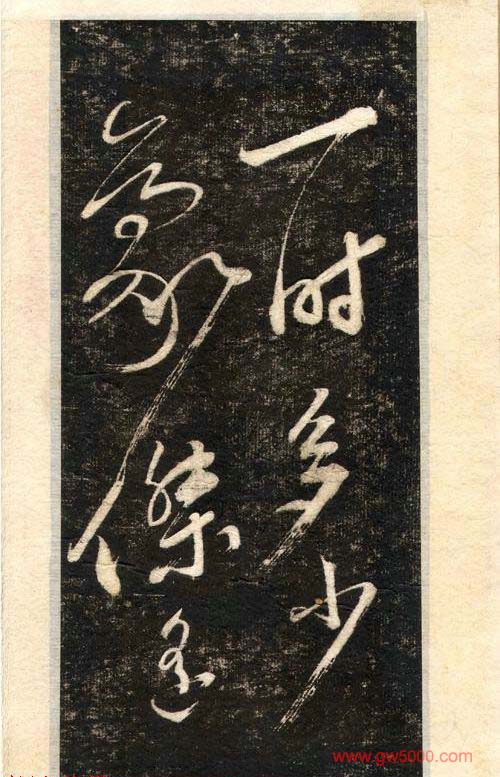 一时多少
豪傑遥
www.gw5000.com